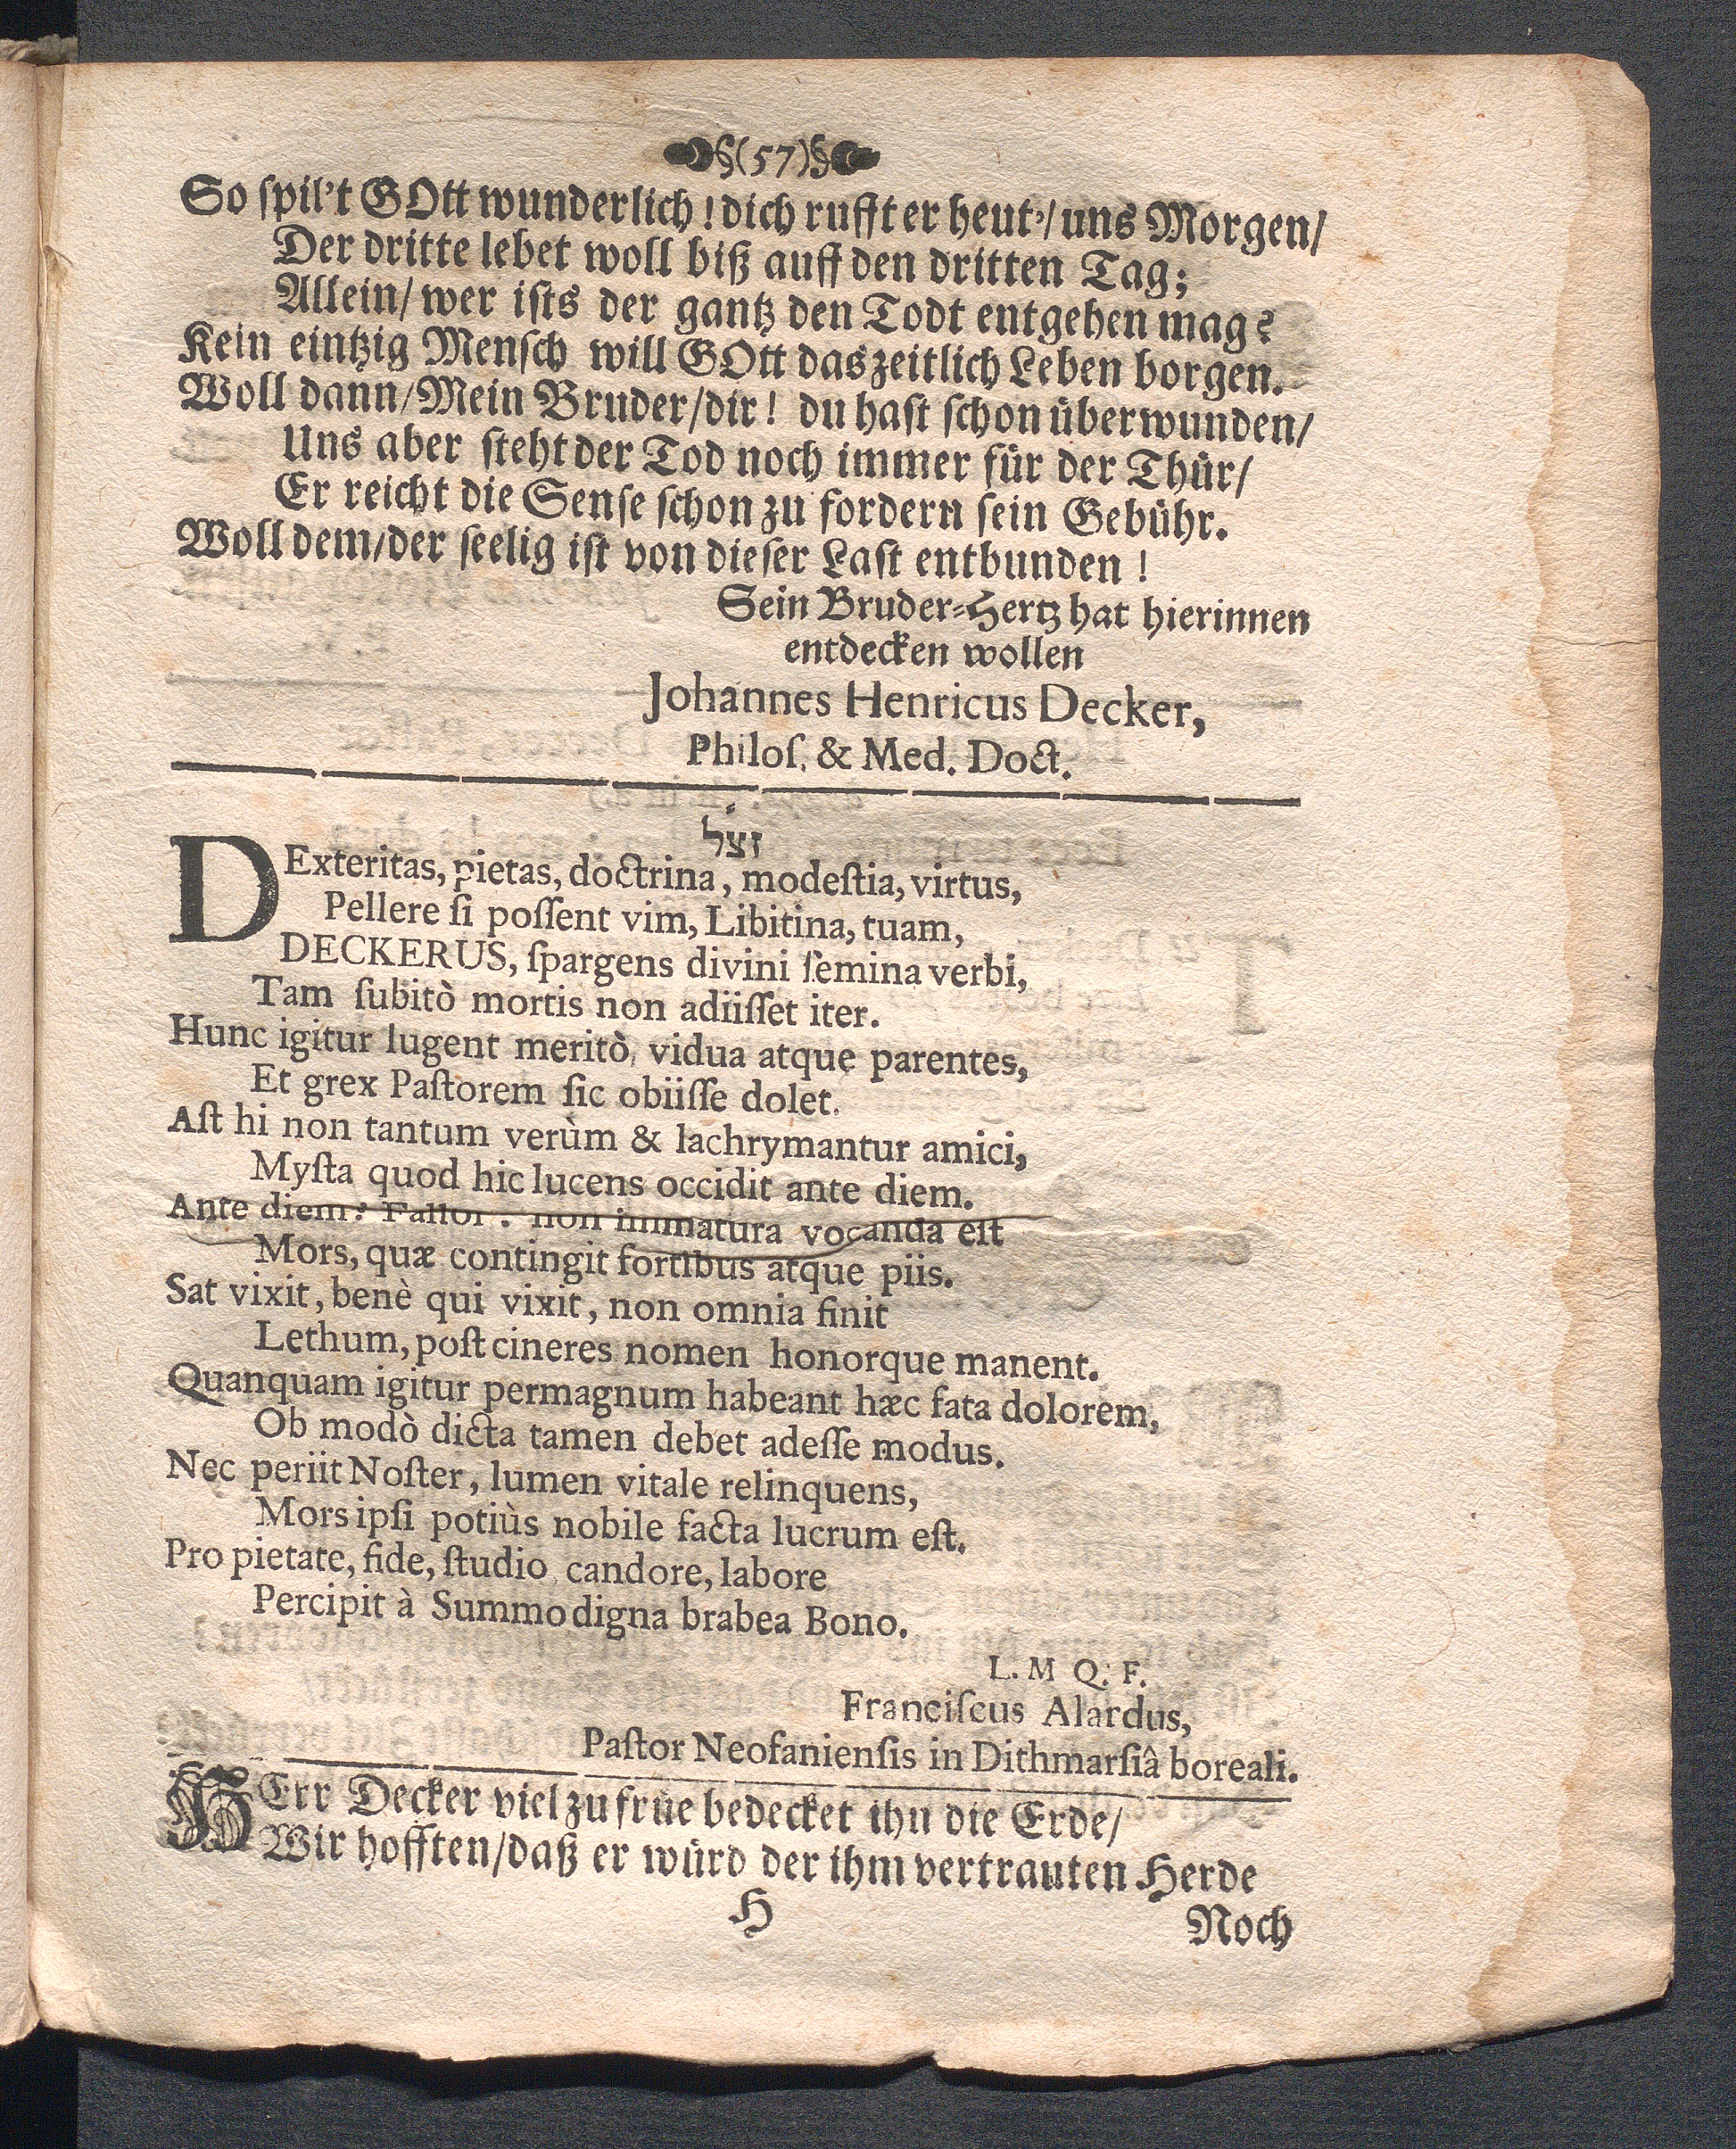 §(57)§
So ſpil't GOtt wunderlich! dich rufft er heut'/ uns Morgen/
Der dritte lebet woll biß auff den dritten Tag;
Allein/ wer iſts der gantz den Todt entgehen mag?
Kein eintzig Menſch will GOtt das zeitlich Leben borgen.
Woll dann/ Mein Bruder/ dir! du haſt ſchon überwunden/
Uns aber ſteht der Tod noch immer für der Thür/
Er reicht die Senſe ſchon zu fordern ſein Gebühr.
Woll dem/ der ſeelig iſt von dieſer Laſt entbunden!
Sein Bruder-Hertz hat hierinnen
entdecken wollen
Johannes Henricus Decker,
Philoſ. & Med. Doct.
זצל
DExteritas, pietas, doctrina, modeſtia, virtus,
Pellere ſi poſſent vim, Libitina, tuam,
DECKERUS, ſpargens divini ſemina verbi,
Tam ſubitò mortis non adiiſſet iter.
Hunc igitur lugent meritò, vidua atque parentes,
Et grex Paſtorem ſic obiiſſe dolet.
Aſt hi non tantum verùm & lachrymantur amici,
Myſta quod hic lucens occidit ante diem.
Ante diem? Fallor. non immatura vocanda eſt
Mors, quæ contingit fortibus atque piis.
Sat vixit, benè qui vixit, non omnia finit
Lethum, poſt cineres nomen honorque manent.
Quanquam igitur permagnum habeant hæc fata dolorem,
Ob modò dicta tamen debet adeſſe modus.
Nec periit Noſter, lumen vitale relinquens,
Mors ipſi potiùs nobile facta lucrum eſt.
Pro pietate, fide, ſtudio, candore, labore
Percipit à Summo digna brabea Bono.
L. M Q. F.
Franciſcus Alardus,
Paſtor Neofanienſis in Dithmarſiâ boreali.
HErr Decker viel zu früe bedecket ihn die Erde/
Wir hofften/ daß er würd der ihm vertrauten Herde
H
Noch